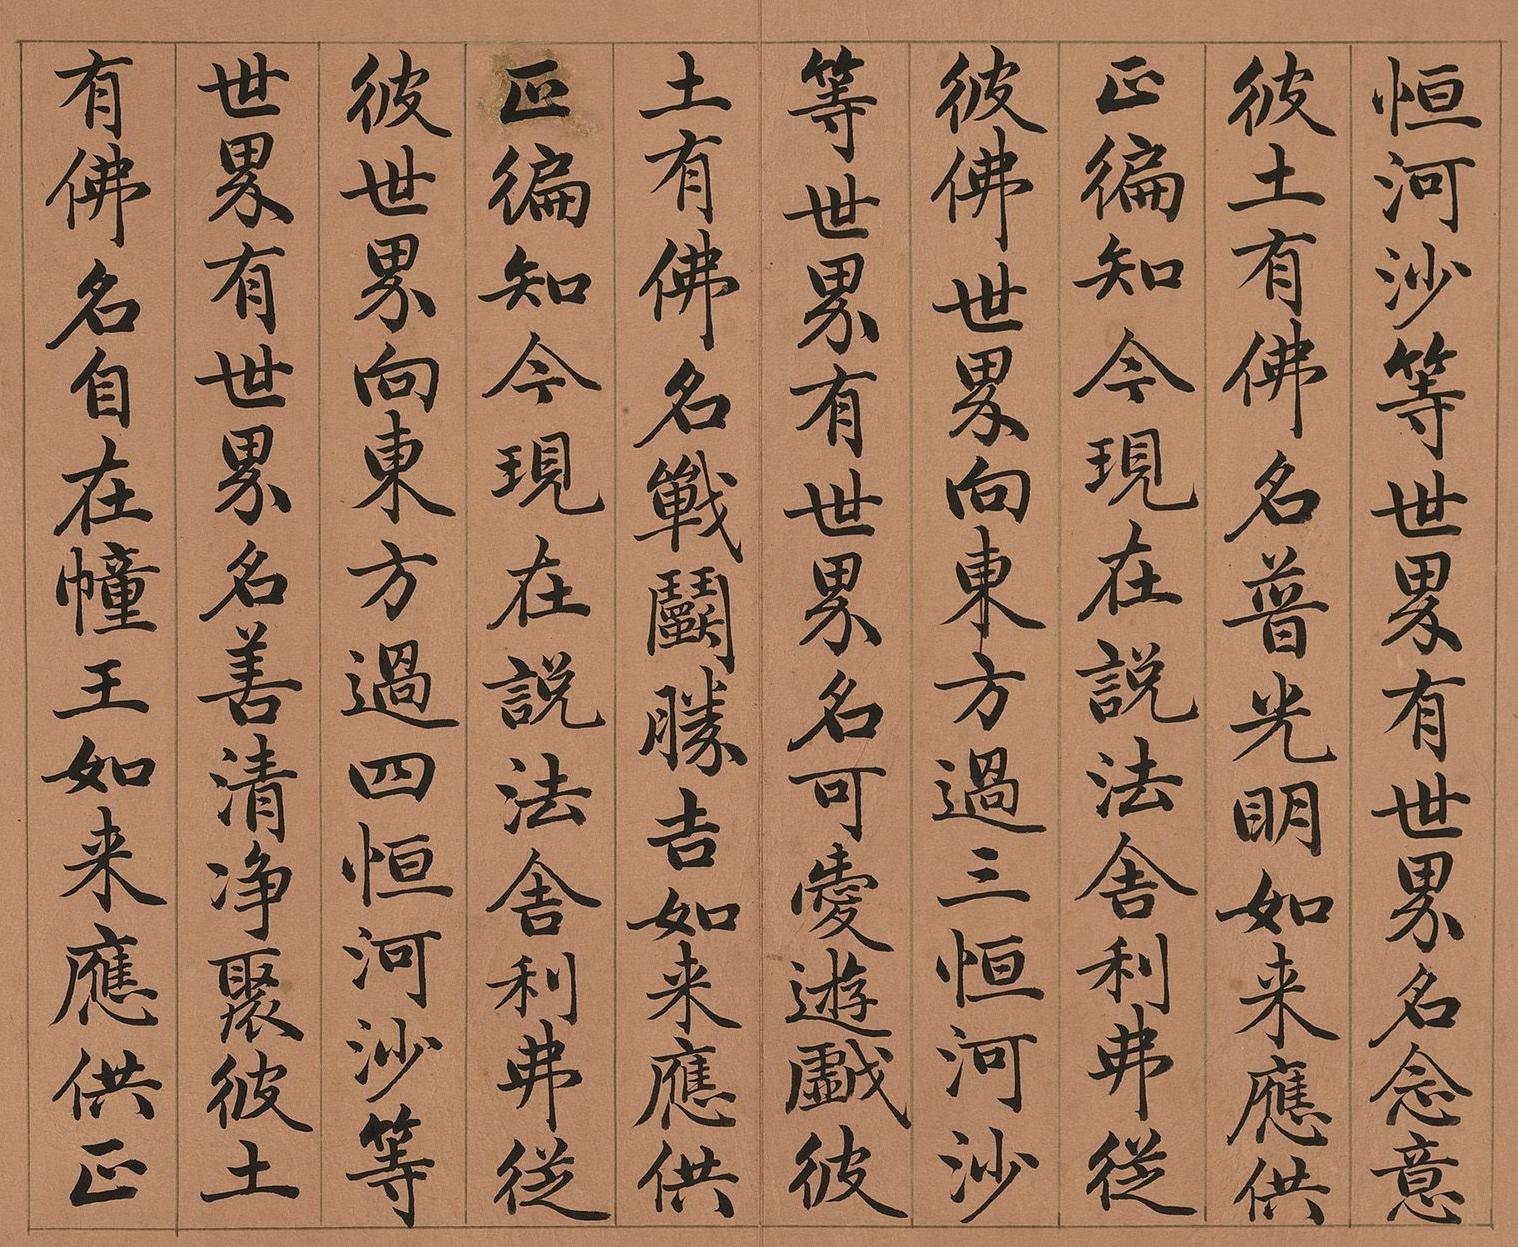 恒河沙等世界有世界名念意
彼土有佛名普光明如来應供
正徧知今現在説法舎利弗従
彼佛世界向東方過三恒河沙
等世界有世界名可愛遊戯彼
土有佛名戰鬪勝吉如来應供
正徧知今現在説法舎利弗従
彼世界向東方過四恒河沙等
世界有世界名善清浄聚彼土
有佛名自在幢王如来應供正